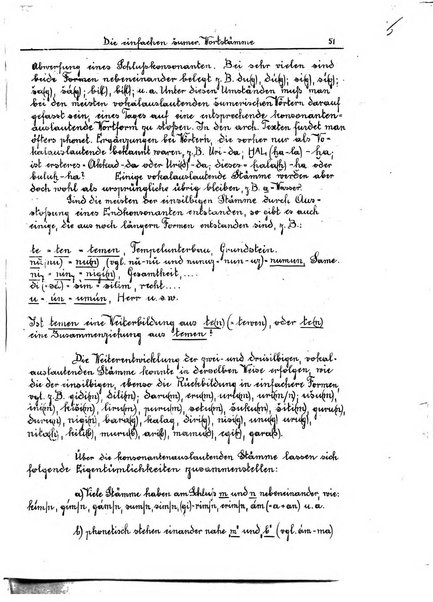 5
Die einfachen sumer. Wortstämme 51
Abwerfung eines Schlußkonsonanten. Bei sehr vielen sind
beide Formen nebeneinander belegt z.B. du(g), dū(g); si(g), sū(g);
u.a. Unter diesen Umständen muß man
bei den meisten vokalauslautenden sumerischen Wörtern darauf
gefasst sein, eines Tages auf eine entsprechende konsonanten-
auslautende Wortform zu stoßen. In den arch. Texten findet man
öfters phonet. Ergänzungen bei Wörtern, die vorher nur als Vo-
kalauslautende bekannt waren, z.B. Uri-da; HAL(ha-la)-ha;
ist ersteres Akkad-da oder Uri-da; dieses halah-ha oder
buluh-ha? Einige vokalauslautende Stämme werden aber
doch wohl als ursprüngliche übrig bleiben, z.B. a-Wasser.
Sind die meisten der einsilbigen Stämme durch Aus-
stoßung eines Endkonsonanten entstanden, so gibt es auch
einige, die aus noch längern Formen entstanden sind, z.B.:
te - ten - temen, Tempelunterbau, Grundstein.
nū(nu) = nu(n) (vgl. nū-nu und nunuz-nun-uz) = numun, Same
ni - nin - nigi(n), Gesamtheit,....
di(-si) - sim - silim, recht....
u - ūn - umūn, Herr u.s.w.
Ist temen eine Weiterbildung aus te(n) (-tewen), oder te(n)
eine Zusammenziehung aus temen?
Die Weiterentwicklung der zwei- und dreisilbigen, vokal-
auslautenden Stämme konnte in derselben Weise erfolgen, wie
die der einsilbigen, ebenso die Rückbildung in einfachere Formen,
vgl. z.B. gidi(m), dili(m), daru(m), eru(m), uru(m), uri(m/n); usu(m),
inim, kiši(m), liru(m), puru(m), setu(m), šuku(m), šiti(m), guru(š),
duru(n), nigi(n), bara(g), kalag, diri(g), nisi(g), unu(g), uru(g),
nita(h), kili(b), muru(b), ari(b), mamu(d), egi(r), gara(š).
Über die konsonantenauslautenden Stämme lassen sich
folgende Eigentümlichkeiten zusammenstellen:
a) Viele Stämme haben am Schluß m und n nebeneinander, wie:
kim/n, gim/n, gám/n, sum/n, sim/n, (gi)-rim/n, erim/n, ám(-a+an) u.a.
b) phonetisch stehen einander nahe m und b (vgl. ám-ma)